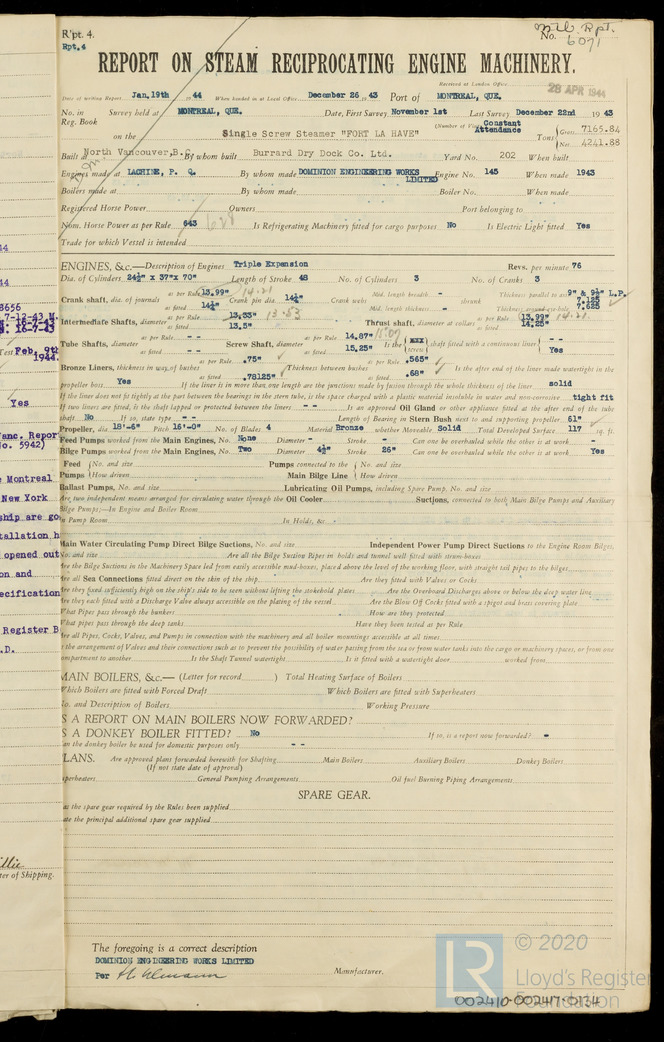 R'pt. 4.
Rpt.4
No. 6071
REPORT ON STEAM RECIPROCATING ENGINE MACHINERY.
Received at London Office
28 APR 1944
Date of writing Report Jan.19th 44 When handed in at Local Office December 26 43 Port of MONTREAL, QUE.
No. in Survey held at MONTREAL, QUE. Date, First Survey November 1st Last Survey December 22nd 19 43
Reg. Book
Constant Attendance
on the Single Screw Steamer "FORT LA HAVE" Tons Gross 7165.84
Net 4241.88
Built at North Vancouver, B.C. By whom built Burrard Dry Dock Co. Ltd. Yard No. 202 When built
Engines made at LACHINE, P. Q. By whom made DOMINION ENGINEERING WORKS LIMITED Engine No. 145 When made 1943
Boilers made at By whom made Boiler No. When made
Registered Horse Power Owners Port belonging to
Nom. Horse Power as per Rule 643 628 Is Refrigerating Machinery fitted for cargo purposes No Is Electric Light fitted Yes
Trade for which Vessel is intended
ENGINES, &c.—Description of Engines Triple Expansion Revs. per minute 76
Dia. of Cylinders 24½" x 37" x 70" Length of Stroke 48 No. of Cylinders 3 No. of Cranks 3
Crank shaft, dia. of journals as per Rule 13.99" 14.21 as fitted 14¼" Crank pin dia. 14¼" Crank webs Mid. length breadth - Mid. length thickness - shrunk Thickness parallel to axis 9" & 9½" L.P. Thickness around eye-hole 7.125 7.625
Intermediate Shafts, diameter as per Rule 13.33" 13.53 as fitted 13.5" Thrust shaft, diameter at collars as per Rule 13.99" 14.21 as fitted 14.25"
Tube Shafts, diameter as per Rule - - as fitted - - Screw Shaft, diameter as per Rule 14.87" 15.07 as fitted 15.25" Is the screw shaft fitted with a continuous liner - - Yes
Bronze Liners, thickness in way of bushes as per Rule .75" as fitted .78125" Thickness between bushes as per Rule .565" as fitted .68" Is the after end of the liner made watertight in the
propeller boss Yes If the liner is in more than one length are the junctions made by fusion through the whole thickness of the liner solid
If the liner does not fit tightly at the part between the bearings in the stern tube, is the space charged with a plastic material insoluble in water and non-corrosive tight fit
If two liners are fitted, is the shaft lapped or protected between the liners - - Is an approved Oil Gland or other appliance fitted at the after end of the tube
shaft No If so, state type - - Length of Bearing in Stern Bush next to and supporting propeller 61"
Propeller, dia 18'-6" Pitch 16'-0" No. of Blades 4 Material Bronze whether Moveable Solid Total Developed Surface 117 sq. ft.
Feed Pumps worked from the Main Engines, No. None Diameter - Stroke - Can one be overhauled while the other is at work -
Bilge Pumps worked from the Main Engines, No. Two Diameter 4½" Stroke 26" Can one be overhauled while the other is at work Yes
Feed Pumps No. and size How driven Pumps connected to the Main Bilge Line No. and size How driven
Ballast Pumps, No. and size Lubricating Oil Pumps, including Spare Pump, No. and size
Are two independent means arranged for circulating water through the Oil Cooler Suctions, connected to both Main Bilge Pumps and Auxiliary
Bilge Pumps;—In Engine and Boiler Room
In Pump Room In Holds, &c.
Main Water Circulating Pump Direct Bilge Suctions, No. and size Independent Power Pump Direct Suctions to the Engine Room Bilges,
No. and size Are all the Bilge Suction Pipes in holds and tunnel well fitted with strum-boxes
Are the Bilge Suctions in the Machinery Space led from easily accessible mud-boxes, placed above the level of the working floor, with straight tail pipes to the bilges
Are all Sea Connections fitted direct on the skin of the ship Are they fitted with Valves or Cocks
Are they fixed sufficiently high on the ship's side to be seen without lifting the stokehold plates Are the Overboard Discharges above or below the deep water line
Are they each fitted with a Discharge Valve always accessible on the plating of the vessel Are the Blow Off Cocks fitted with a spigot and brass covering plate
What Pipes pass through the bunkers How are they protected
What pipes pass through the deep tanks Have they been tested as per Rule
Are all Pipes, Cocks, Valves, and Pumps in connection with the machinery and all boiler mountings accessible at all times
Is the arrangement of Valves and their connections such as to prevent the possibility of water passing from the sea or from water tanks into the cargo or machinery spaces, or from one
compartment to another Is the Shaft Tunnel watertight Is it fitted with a watertight door worked from
MAIN BOILERS, &c.— (Letter for record ) Total Heating Surface of Boilers
Which Boilers are fitted with Forced Draft Which Boilers are fitted with Superheaters
No. and Description of Boilers Working Pressure
IS A REPORT ON MAIN BOILERS NOW FORWARDED?
IS A DONKEY BOILER FITTED? No If so, is a report now forwarded? -
Can the donkey boiler be used for domestic purposes only - -
PLANS. Are approved plans forwarded herewith for Shafting Main Boilers Auxiliary Boilers Donkey Boilers
(If not state date of approval)
Superheaters General Pumping Arrangements Oil fuel Burning Piping Arrangements
SPARE GEAR.
Has the spare gear required by the Rules been supplied
State the principal additional spare gear supplied
The foregoing is a correct description
DOMINION ENGINEERING WORKS LIMITED
Per Manufacturer.
002410-002417-0134
LR © 2020
Lloyd's Register
Foundation
44
44
8656
7-12-43 M.
16-7-43
Test Feb. 9th 1944.
Yes
Vanc. Report
No. 5942)
e Montreal
New York
ship are go
stallation h
opened out
on and
ecification
Register B
.D.
ter of Shipping.